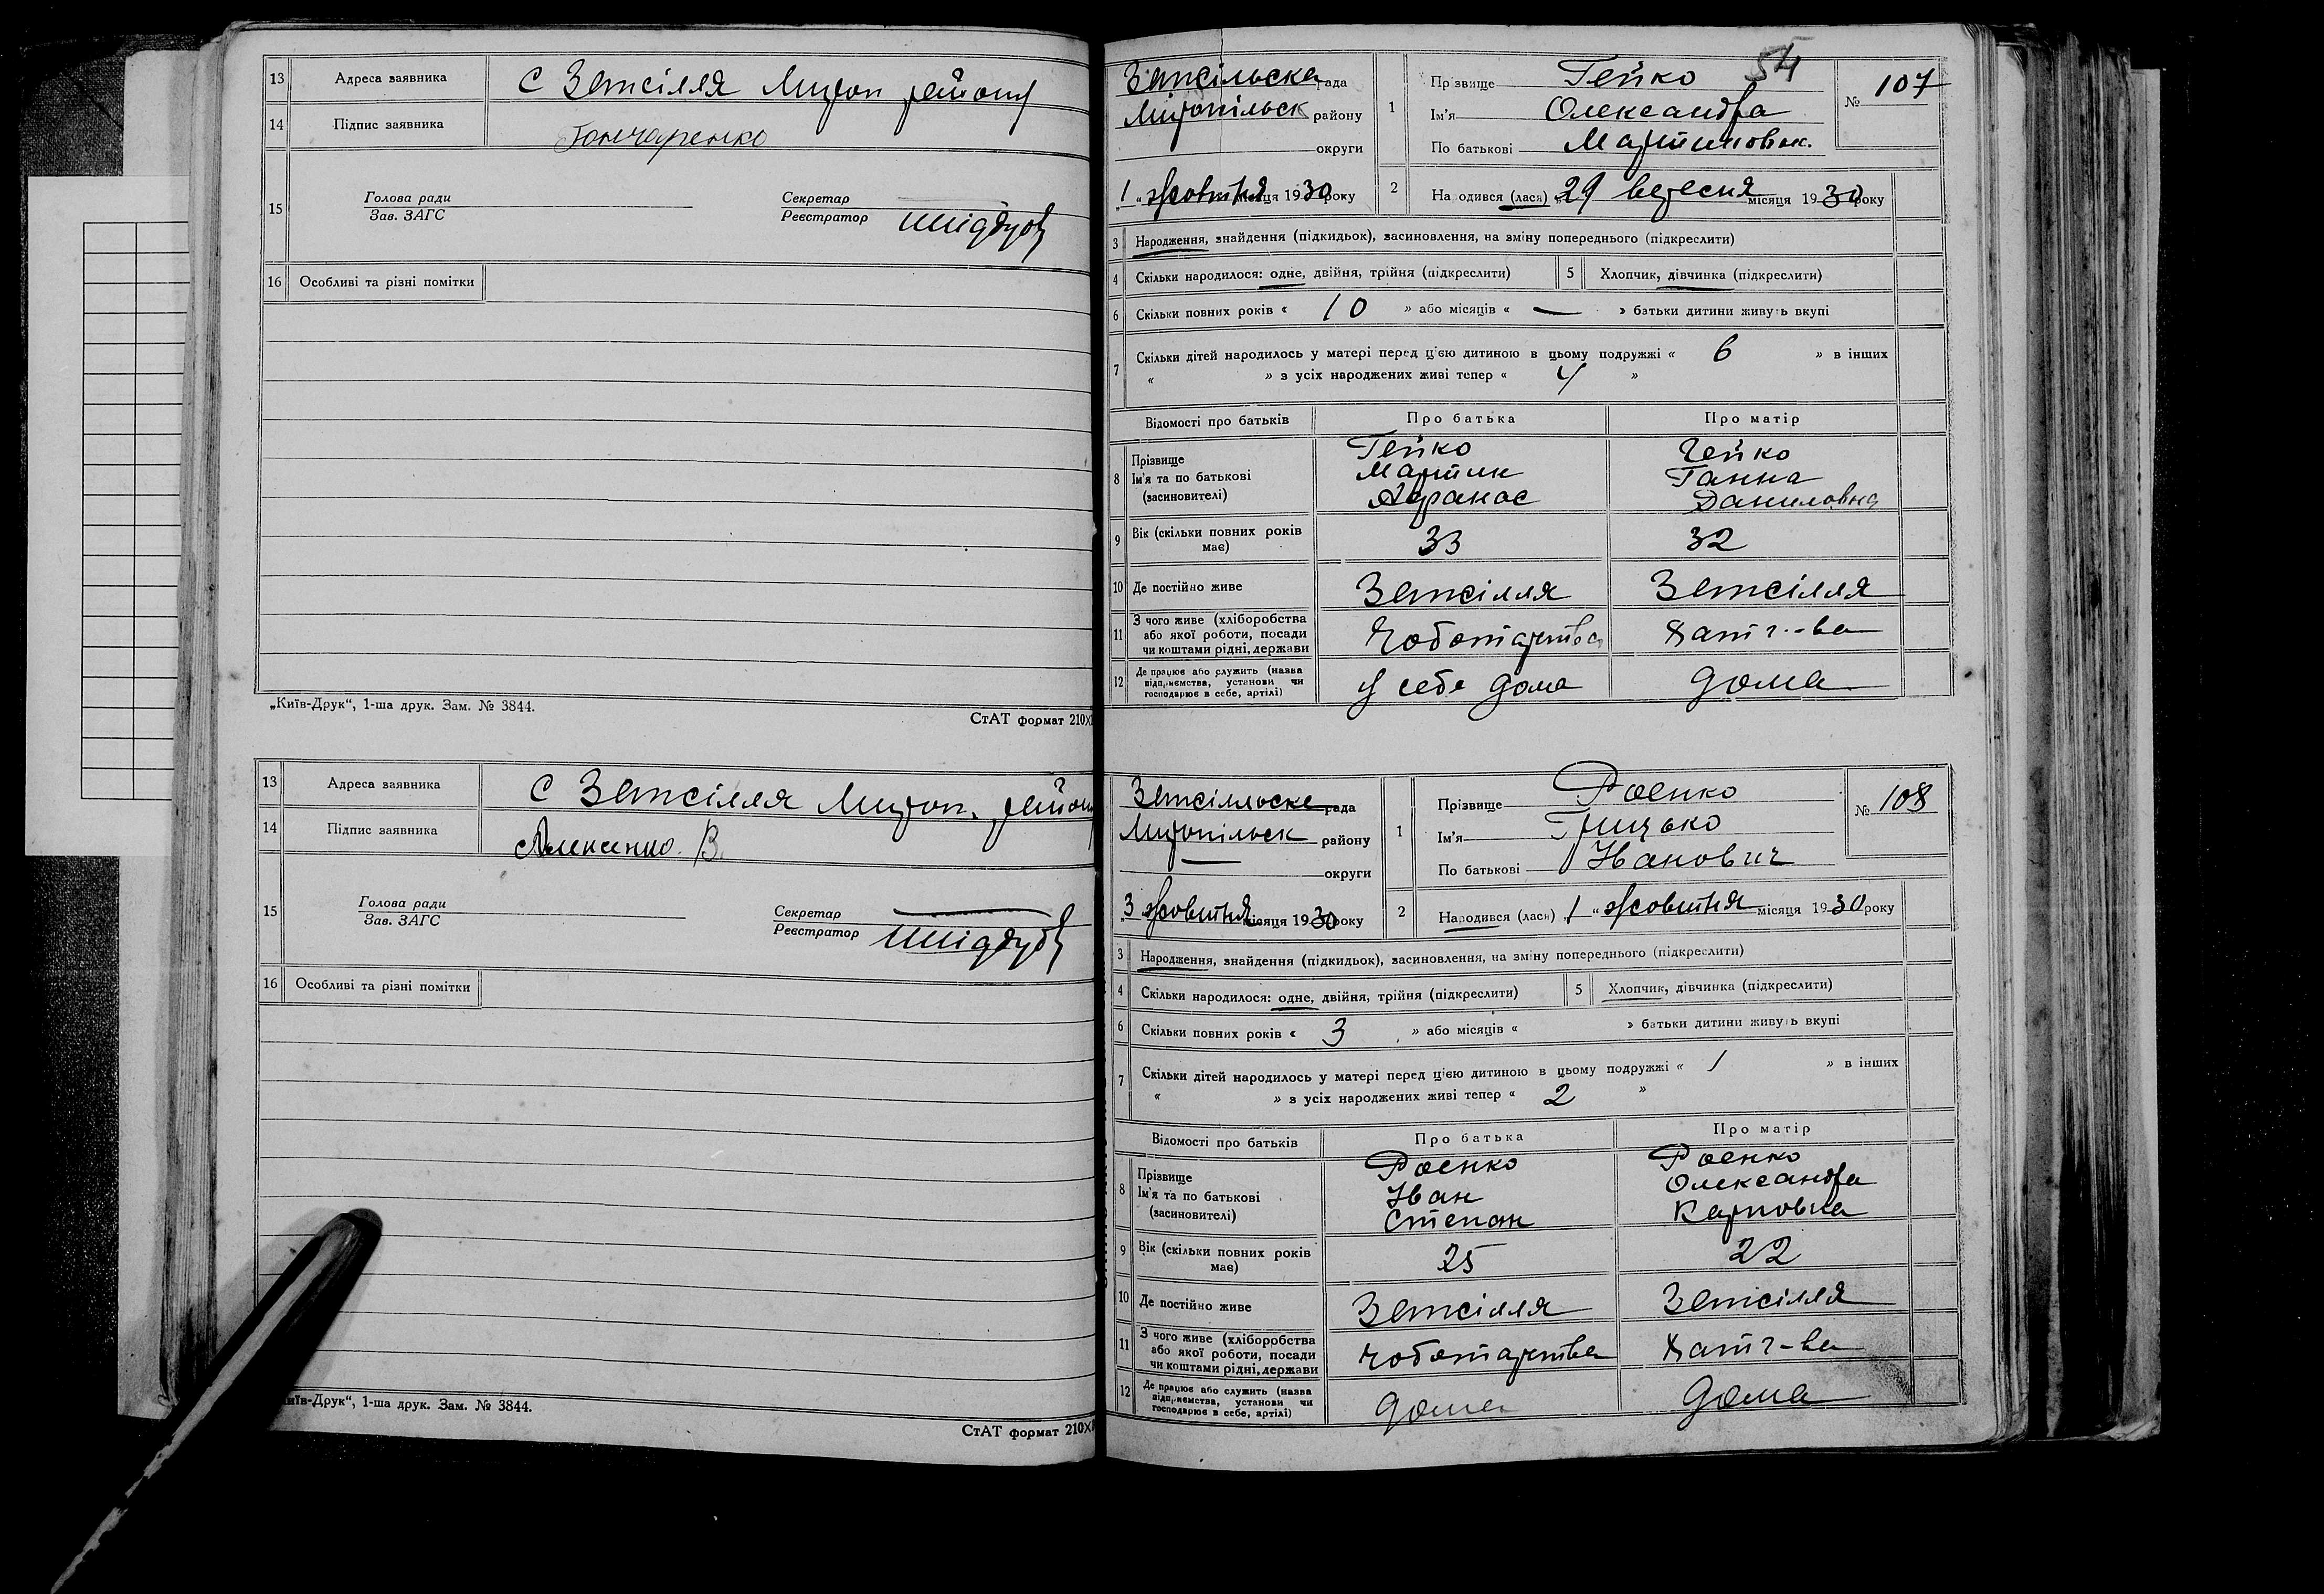 13 Адреса заявника С Запсілля Мироп району
14 Підпис заявника Гончаренко
15 Голова ради
Зав. ЗАГС
Секретар
Реєстратор
16 Особливі та різні помітки
„Київ-Друк“, 1-ша друк. Зам. № 3844.
СтАТ формат 210×
13 Адреса заявника С Запсілля Мироп. району
14 Підпис заявника Алексенко. В.
15 Голова ради
Зав. ЗАГС
Секретар
Реєстратор
16 Особливі та різні помітки
Київ-Друк“, 1-ша друк. Зам. № 3844.
СтАТ формат 210×
54
Запсільска рада
Миропільск району
округи
„1“ жовтня місяця 1930 року
1 Прізвище Гейко
Ім'я Олександра
По батькові Мартиновн.
№ 107
2 Народився (лася) „29 вересня місяця 1930 року
3 Народження, знайдення (підкидьок), засиновлення, на зміну попереднього (підкреслити)
4 Скільки народилося: одне, двійня, трійня (підкреслити) 5 Хлопчик, дівчинка (підкреслити)
6 Скільки повних років « 10 » або місяців « — » батьки дитини живуть вкупі
7 Скільки дітей народилось у матері перед цією дитиною в цьому подружжі « 6 » в інших
« » з усіх народжених живі тепер « 4 »
Відомості про батьків Про батька Про матір
8 Прізвище Гейко Гейко
Ім'я та по батькові Мартин Ганна
(засиновителі) Афанас Даниловна
9 Вік (скільки повних років має) 33 32
10 Де постійно живе Запсілля Запсілля
11 З чого живе (хліборобства
або якої роботи, посади
чи коштами рідні, держави Чоботарства Хатг.-ва
12 Де працює або служить (назва
підприємства, установи чи
господарює в себе, артілі) У себе дома дома
Запсільска рада
Миропільск району
— округи
„3“ жовтня місяця 1930 року
1 Прізвище Роенко
Ім'я Грицько
По батькові Іванович
№ 108
2 Народився (лася) „1“ жовтня місяця 1930 року
3 Народження, знайдення (підкидьок), засиновлення, на зміну попереднього (підкреслити)
4 Скільки народилося: одне, двійня, трійня (підкреслити) 5 Хлопчик, дівчинка (підкреслити)
6 Скільки повних років « 3 » або місяців « » батьки дитини живуть вкупі
7 Скільки дітей народилось у матері перед цією дитиною в цьому подружжі « 1 » в інших
« » з усіх народжених живі тепер « 2 »
Відомості про батьків Про батька Про матір
8 Прізвище Роенко Роенко
Ім'я та по батькові Іван Олександра
(засиновителі) Степан Карповна
9 Вік (скільки повних років має) 25 22
10 Де постійно живе Запсілля Запсілля
11 З чого живе (хліборобства
або якої роботи, посади
чи коштами рідні, держави чоботарства Хатг-ва
12 Де працює або служить (назва
підприємства, установи чи
господарює в себе, артілі) дома дома